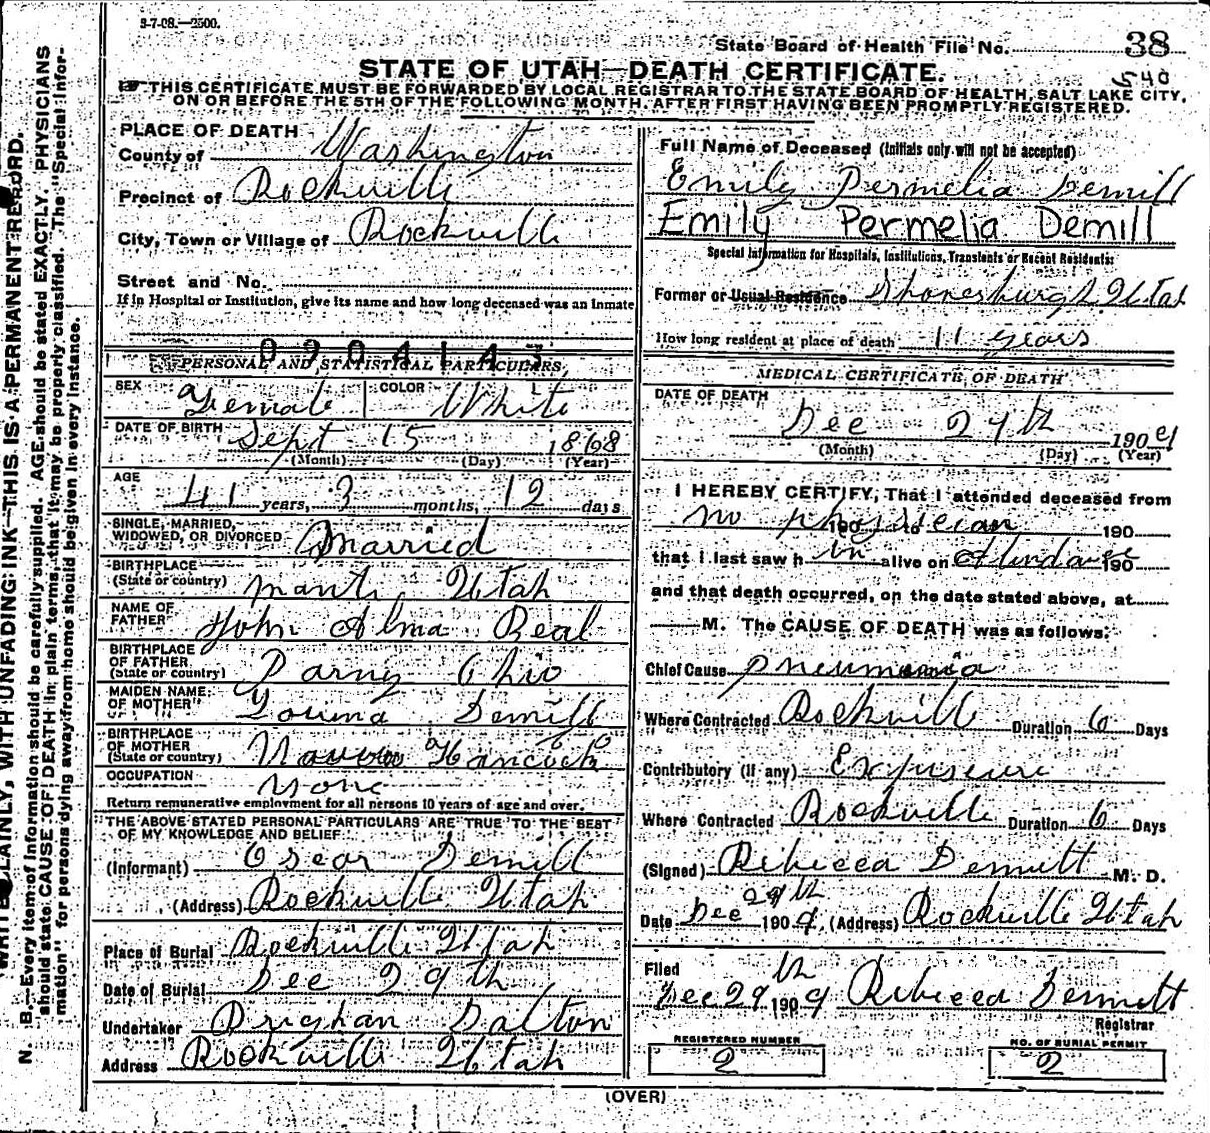 3-7-08.—2500.
State Board of Health File No. 38
STATE OF UTAH—DEATH CERTIFICATE.
540
THIS CERTIFICATE MUST BE FORWARDED BY LOCAL REGISTRAR TO THE STATE BOARD OF HEALTH, SALT LAKE CITY,
ON OR BEFORE THE 5TH OF THE FOLLOWING MONTH, AFTER FIRST HAVING BEEN PROMPTLY REGISTERED.
PLACE OF DEATH
County of Washington
Precinct of Rockville
City, Town or Village of Rockville
Street and No.
If in Hospital or Institution, give its name and how long deceased was an inmate
0904143
PERSONAL AND STATISTICAL PARTICULARS,
SEX Female COLOR White
DATE OF BIRTH Sept 15 1868
(Month) (Day) (Year)
AGE
41 years, 3 months, 12 days
SINGLE, MARRIED,
WIDOWED, OR DIVORCED Married
BIRTHPLACE
(State or country) Manti Utah
NAME OF
FATHER John Alma Beal
BIRTHPLACE
OF FATHER
(State or country) Ohio
MAIDEN NAME
OF MOTHER Demill
BIRTHPLACE
OF MOTHER
(State or country) Nauvoo Hancock
OCCUPATION
None
Return remunerative employment for all persons 10 years of age and over.
THE ABOVE STATED PERSONAL PARTICULARS ARE TRUE TO THE BEST
OF MY KNOWLEDGE AND BELIEF
(Informant) Oscar Demill
(Address) Rockville Utah
Place of Burial Rockville Utah
Date of Burial Dec 29th
Undertaker Brighan Dalton
Address Rockville Utah
Full Name of Deceased (Initials only will not be accepted)
Emily Permelia Demill
Emily Permelia Demill
Special Information for Hospitals, Institutions, Transients or Recent Residents:
Former or Usual Residence Shonesburgh Utah
How long resident at place of death 11 years
MEDICAL CERTIFICATE OF DEATH
DATE OF DEATH
Dec 27th 1909
(Month) (Day) (Year)
I HEREBY CERTIFY, That I attended deceased from
no physician 190 to 190
that I last saw h in alive on Atindance 190
and that death occurred, on the date stated above, at
M. The CAUSE OF DEATH was as follows:
Chief Cause pneumonia
Where Contracted Rockville Duration 6 Days
Contributory (If any) Exposeure
Where Contracted Rockville Duration 6 Days
(Signed) Rebecca Dennett M. D.
Date Dec 29th 1909, (Address) Rockville Utah
Filed
Dec 29th 1909 Rebecca Dennett
Registrar
REGISTERED NUMBER
2
NO. OF BURIAL PERMIT
2
(OVER)
WRITE PLAINLY, WITH UNFADING INK—THIS IS A PERMANENT RECORD.
N. B.—Every item of information should be carefully supplied. AGE should be stated EXACTLY. PHYSICIANS
should state CAUSE OF DEATH in plain terms, that it may be properly classified. The "Special Infor-
mation" for persons dying away from home should be given in every instance.